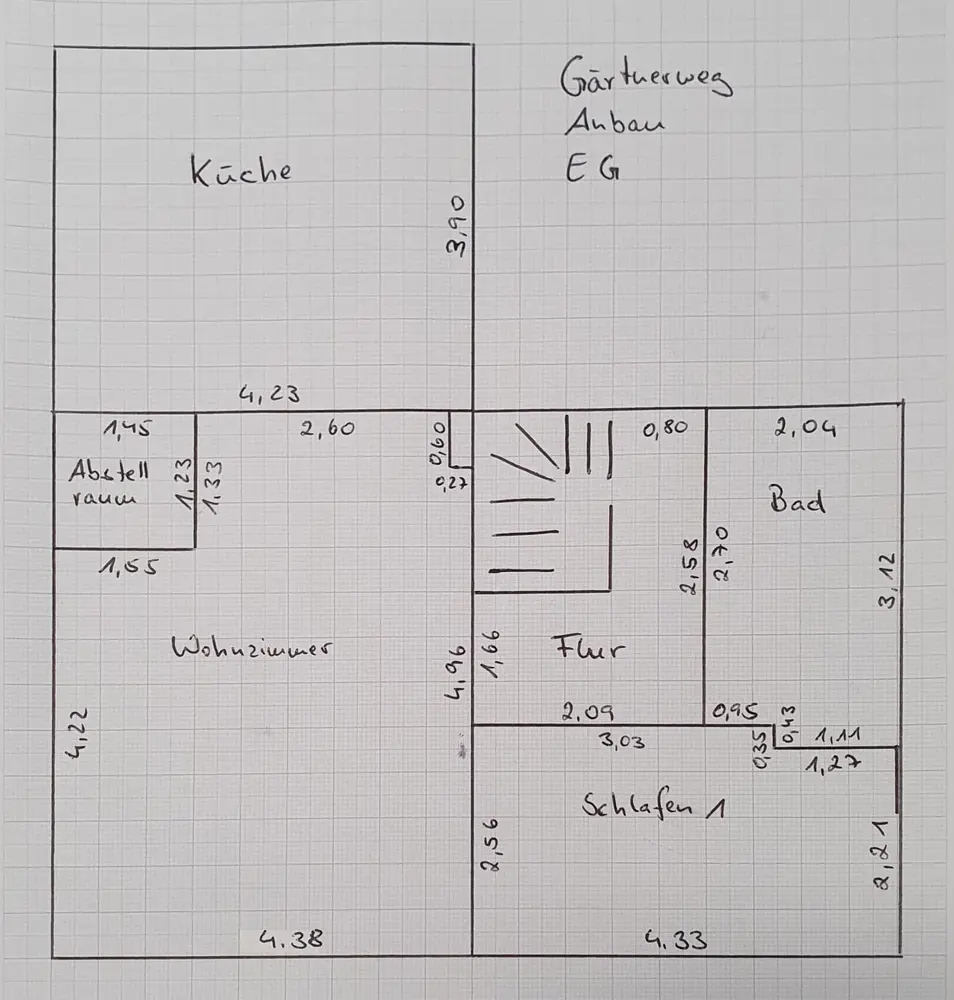 Gärtnerweg
Anbau
EG
Küche
3,90
4,23
1,45
2,60
0,60
0,80
2,04
Abstell
raum
1,23
1,33
0,27
Bad
1,55
2,58
2,70
3,12
Wohnzimmer
4,96
1,66
Flur
4,22
2,09
0,95
0,43
1,11
3,03
0,35
1,27
Schlafen 1
2,56
2,21
4.38
4.33